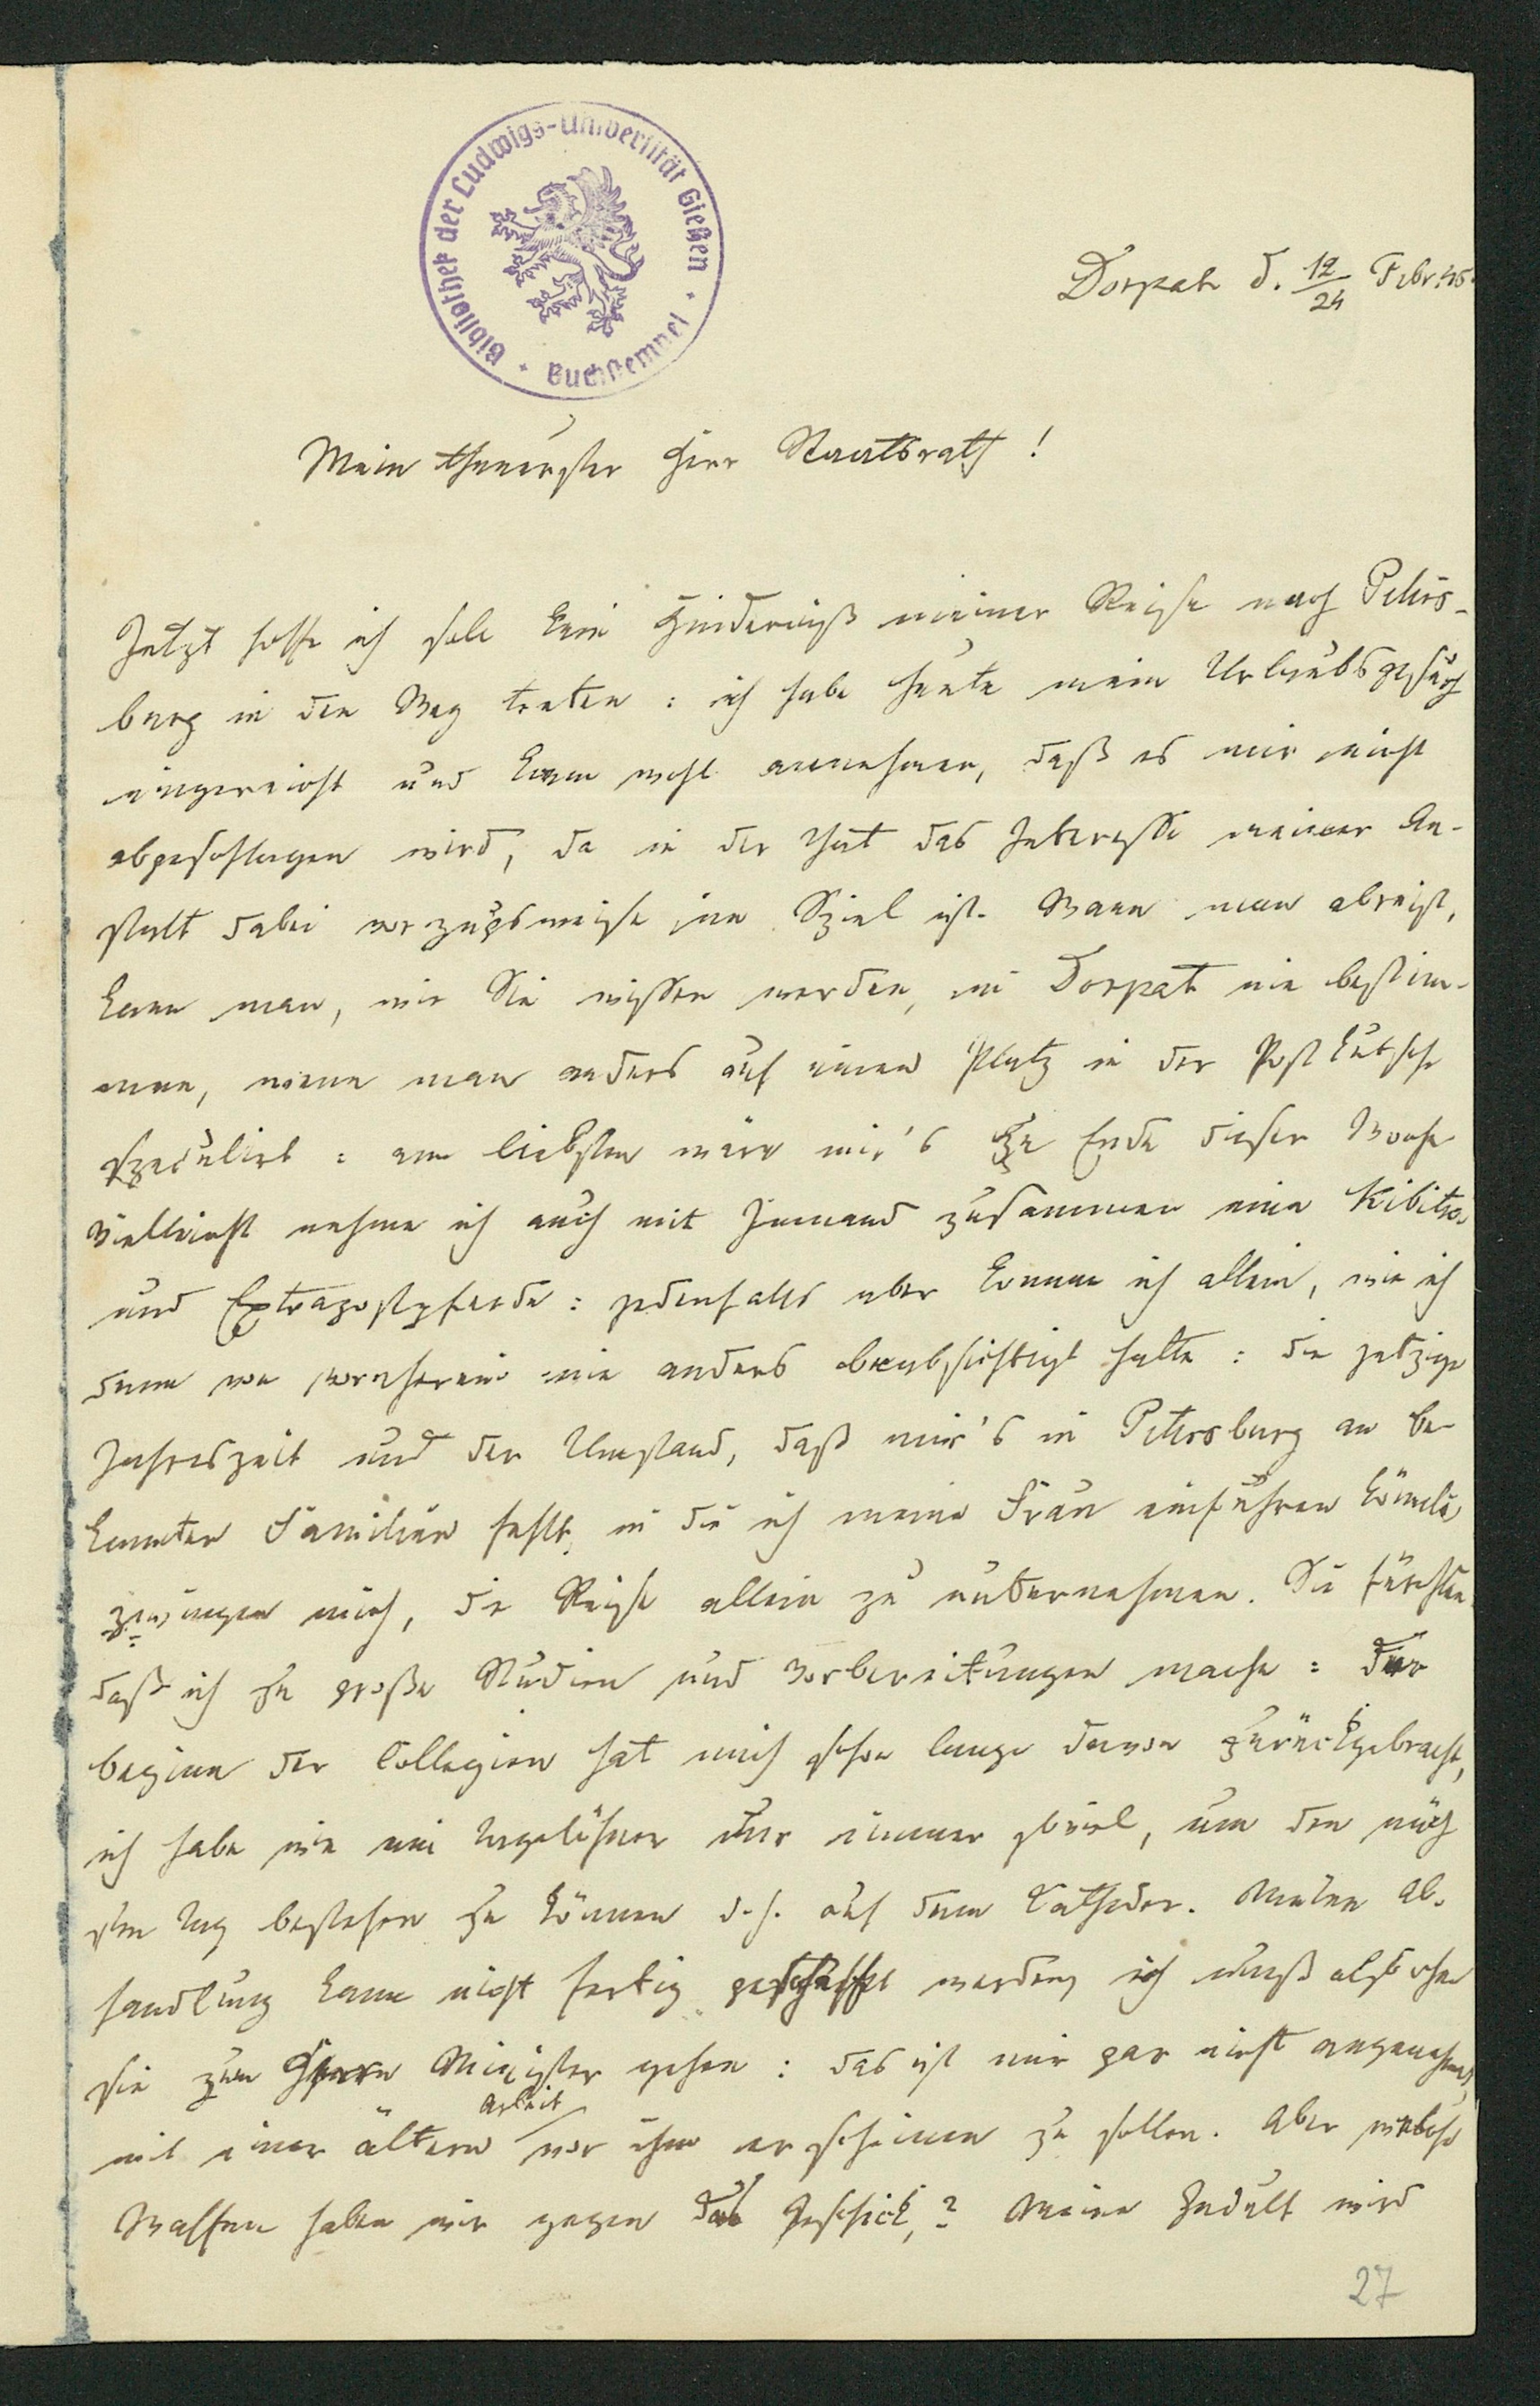 Bibliothek der Ludwigs-Universität Gießen
Buchstempel
Dorpat d. 12/24 Febr. 45.
Mein theuerster Herr Staatsrath!
Jetzt hoffe ich soll kein Hinderniß meiner Reise nach Peters-
burg in den Weg treten: ich habe heute mein Urlaubsgesuch
eingereicht und kann wohl annehmen, daß es mir nicht
abgeschlagen wird, da in der That das Interesse meiner An-
stalt dabei vorzugsweise im Spiel ist. Wann man abreist,
kann man, wie Sie wissen werden, in Dorpat nie bestim-
men, wenn man anders auf einen Platz in der Postkutsche
speculirt: am liebsten wäre mir's zu Ende dieser Woche
Vielleicht nehme ich auch mit Jemand zusammen eine Kibitke
und Extrapostpferde: jedenfalls aber komme ich allein, wie ich
denn von vornherein nie anders beabsichtigt hatte: die jetzige
Jahreszeit und der Umstand, daß mir's in Petersburg an be-
kannten Familien fehlt, in die ich meine Frau einführen könnte,
zwingen mich, die Reise allein zu unternehmen. Sie fürchten,
daß ich zu große Studien und Vorbereitungen mache: der
Beginn der Collegien hat mich schon lange davon zurückgebracht,
ich habe wie ein Tagelöhner nur immer soviel, um den näch
sten Tag bestehen zu können d. h. auf dem Catheder. Meine Ab-
handlung kann nicht fertig geschafft werden, ich muß also ohne
sie zum Herrn Minister gehen: das ist mir gar nicht angenehm,
mit einer ältern Arbeit vor ihm erscheinen zu sollen. Aber welche
Waffen haben wir gegen das Geschick? Meine Geduld wird
27